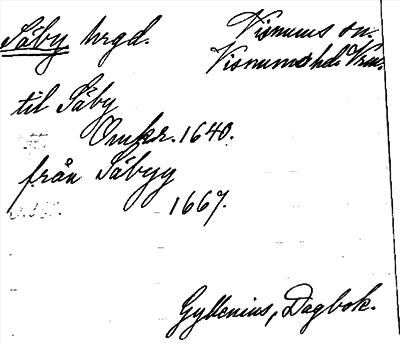 Säby hrgd. Visnums sn.
Visnums hd. Vrm.
til Säby
Omkr. 1640.
från Säbyy
1667.
Gyllenius, Dagbok.